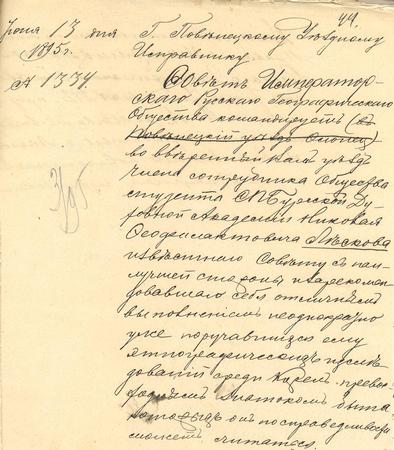 44.
Iюня 13 дня
1895 г.
№ 1334.
Г. Повѣнецкому Уѣздному
Исправнику
Совѣтъ Император-
скаго Русскаго Географическаго
Общества командируетъ (въ
Повѣнецкій уѣздъ Олонец
во ввѣренный Вамъ уѣздъ
члена сотрудника Общества
студента СПБургской Ду-
ховной Академіи Николая
Ѳеофилактовича Лѣскова
извѣстнаго Совѣту съ наи-
лучшей стороны и зарекомен-
довавшаго себя отличнымъ
выполненіемъ неоднократно
уже поручавшихся ему
этнографическихъ изслѣ-
дованій среди Карелъ, превос-
ходнымъ знатокомъ быта
которыхъ онъ по справедливости
можетъ считаться.